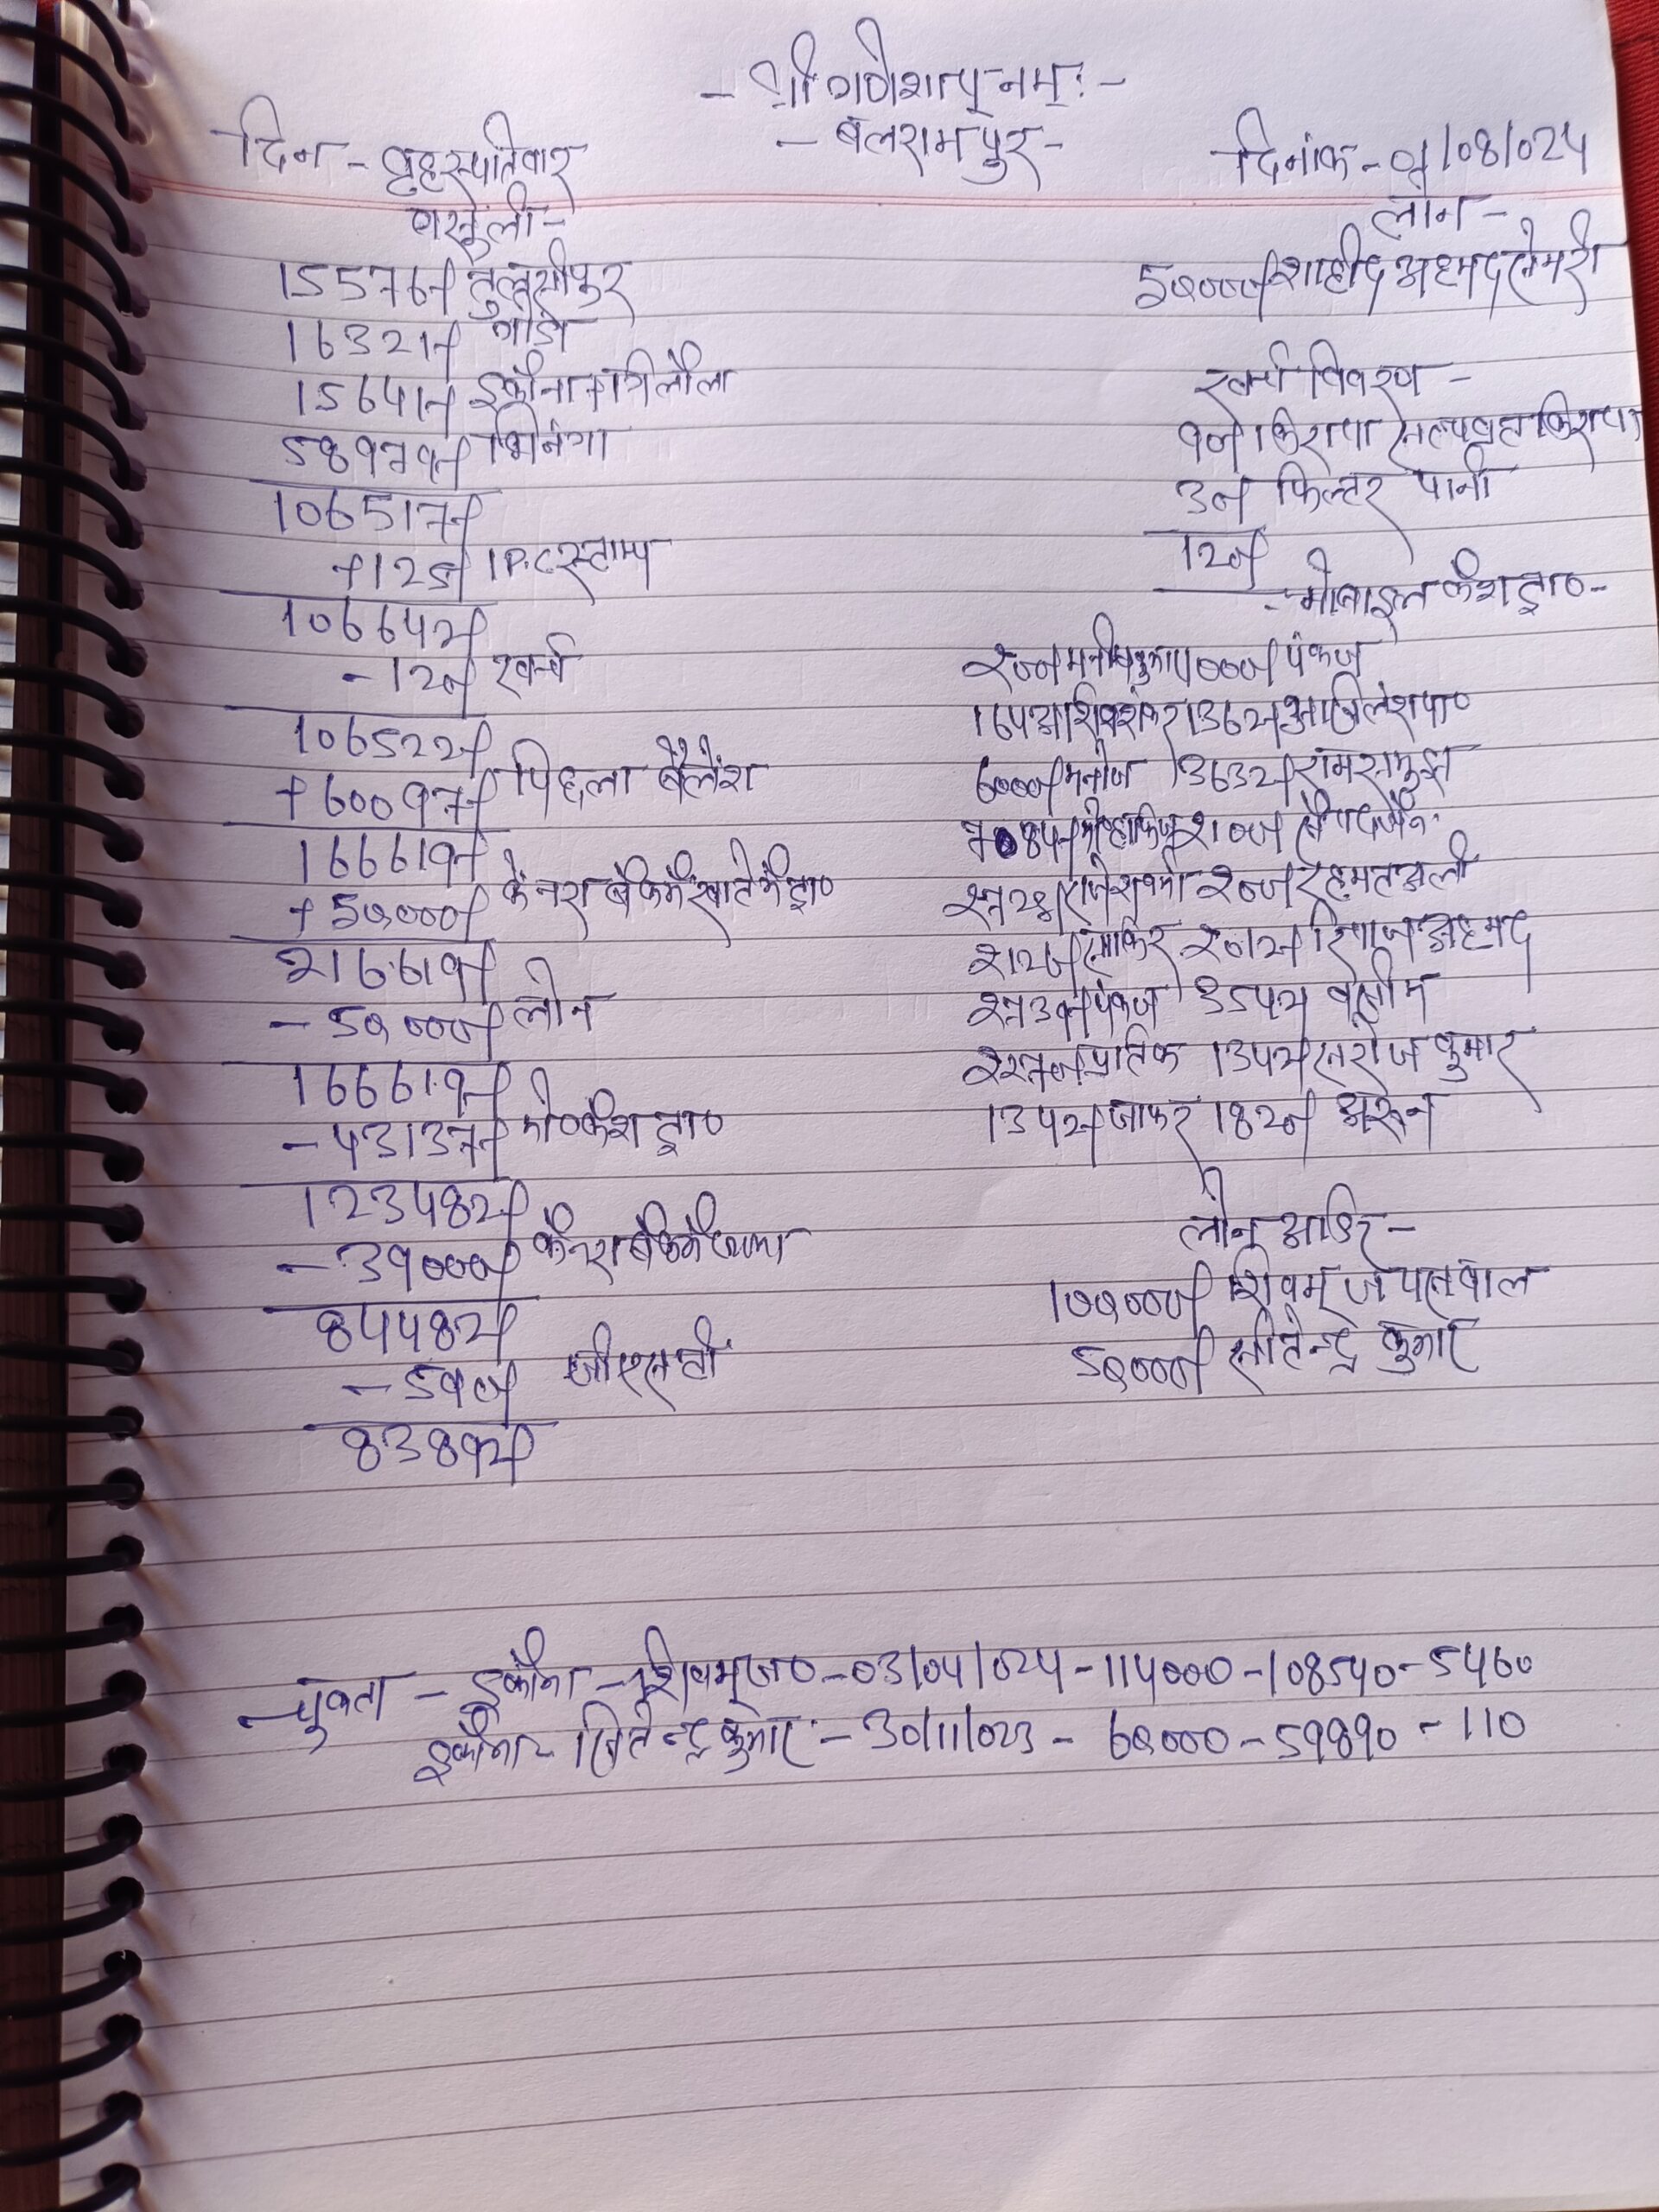 - श्री गणेशाय् नम्: -
- बलरामपुर -
दिन - बृहस्पतिवार
दिनांक - 01/08/024
वसूली -
15576/- तुलसीपुर
16321/- गोंडा
15641/- इकौना +
58979/- भिनगा
106517/-
+125/- I.P.C स्टाम्प
106642/-
-120/- खर्च
106522/-
+60097/- पिछला बैलेंश
166619/-
+50,000/- केनरा बैंक में खाते में ट्रा०
216619/-
-50,000/- लोन
166619/-
-43137/- मो० कैश ट्रा०
123482/-
-39000/- केनरा बैंक में जमा
84482/-
-590/- जीएसटी
83892/-
लोन -
50,000/- शाहीद अहमद
खर्च विवरण -
90/- किराया किराया
30/- फिल्टर पानी
120/-
- मोबाइल कैश ट्रा० -
पंकज
शिवशंकर 1362/- अखिलेश पा०
6000/- मनोज 3632/- रामसमुझ
रहमत अली
रियाज अहमद
पंकज 3542/- वसीम
प्रतिक 1342/- सरोज कुमार
1342/- जाफर 1820/- अरुन
लोन आर्डर -
100,000/- शिवम् जयसवाल
50,000/- जीतेन्द्र कुमार
चुक्ता - इकौना - शिवम् ज० - 03/04/024 - 114000 - 108540 - 5460
इकौना - जितेन्द्र कुमार - 30/11/023 - 60,000 - 59890 - 110